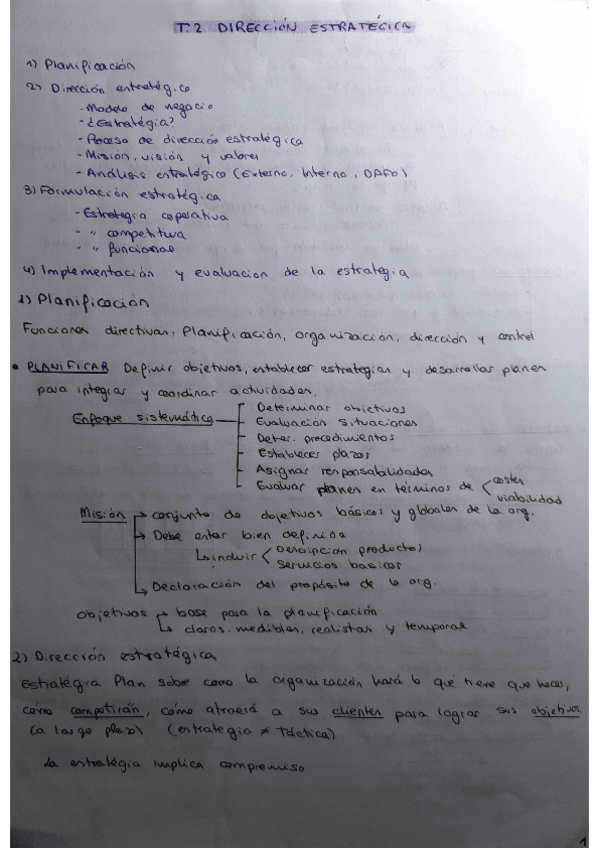 T.2 DIRECCIÓN ESTRATÉGICA
1) Planificación
2) Dirección estratégica
- Modelo de negocio
- ¿Estratégia?
- Proceso de dirección estratégica
- Misión, visión y valores
- Análisis estratégico (Externo, Interno, DAFO)
3) Formulación estratégica
- Estrategia coporativa
- " competitiva
- " funcional
4) Implementación y evaluación de la estrategia
1) Planificación
Funciones directivas: Planificación, organización, dirección y control
• PLANIFICAR Definir objetivos, establecer estrategias y desarrollar planes
para integrar y coordinar actividades.
Enfoque sistemático
Determinar objetivos
Evaluación situaciones
Deter. procedimientos
Establecer plazos
Asignar responsabilidades
Evaluar planes en términos de costes
viabilidad
Misión → conjunto de objetivos básicos y globales de la org.
→ Debe estar bien definida
↳ incluir < Descipción productos
servicios basicos
↳ Declaración del propósito de la org.
objetivos → base para la planificación
↳ claros, medibles, realistas y temporal
2) Dirección estratégica
Estratégia Plan sobre como la organización hará lo que tiene que hacer,
cómo competirán, cómo atraerá a sus clientes para lograr sus objetivos.
(a largo plazo) (estrategia ≠ Táctica)
La estratégia implica compromiso
1